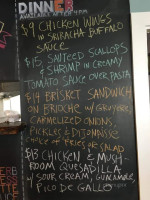 DINNER
AVAILABLE AFTER 4PM
$9 CHICKEN WINGS
in SRIRACHA BUFFALO
SAUCE
$15 SAUTEED SCALLOPS
& SHRIMP in CREAMY
TOMATO SAUCE OVER PASTA
$14 BRISKET SANDWICH
ON BRIOCHE w/ GRUYERE
CARMELIZED ONIONS,
PICKLES & DIJONNAISE
CHOICE OF FRIES OR SALAD
$13 CHICKEN & MUSH-
ROOM QUESADILLA
w/ SOUR CREAM, GUACAMOLE,
PICO DE GALLO